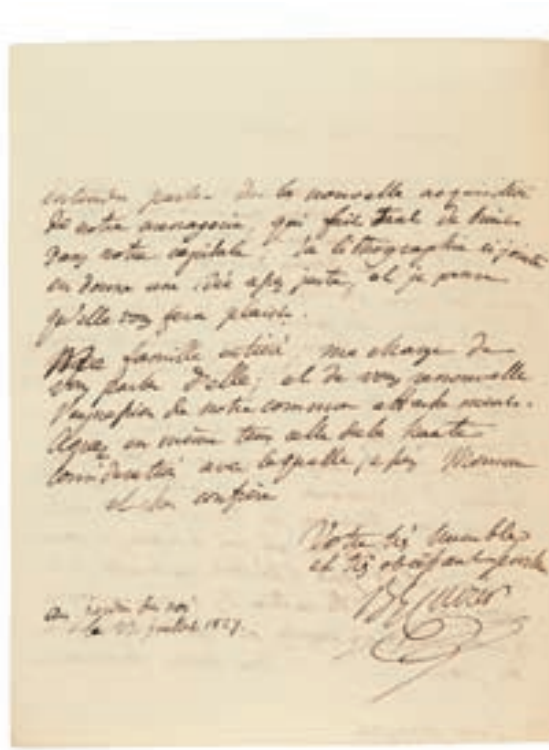 entendu parler de la nouvelle acquisition
de notre menagerie, qui fait tant de bruit
dans notre capitale. la lithographie ci jointe
en donne une idée assez juste, et je pense
qu'elle vous fera plaisir.
Ma famille entière me charge de
vous parler d'elle; et de vous renouveller
l'expression de notre commun attachement.
Agréez en même tems celle de la haute
consideration avec laquelle je suis Monsieur
et cher confrère
Votre très humble
et très obéissant
Bn Cuvier
au jardin du roi
le juillet 1827.